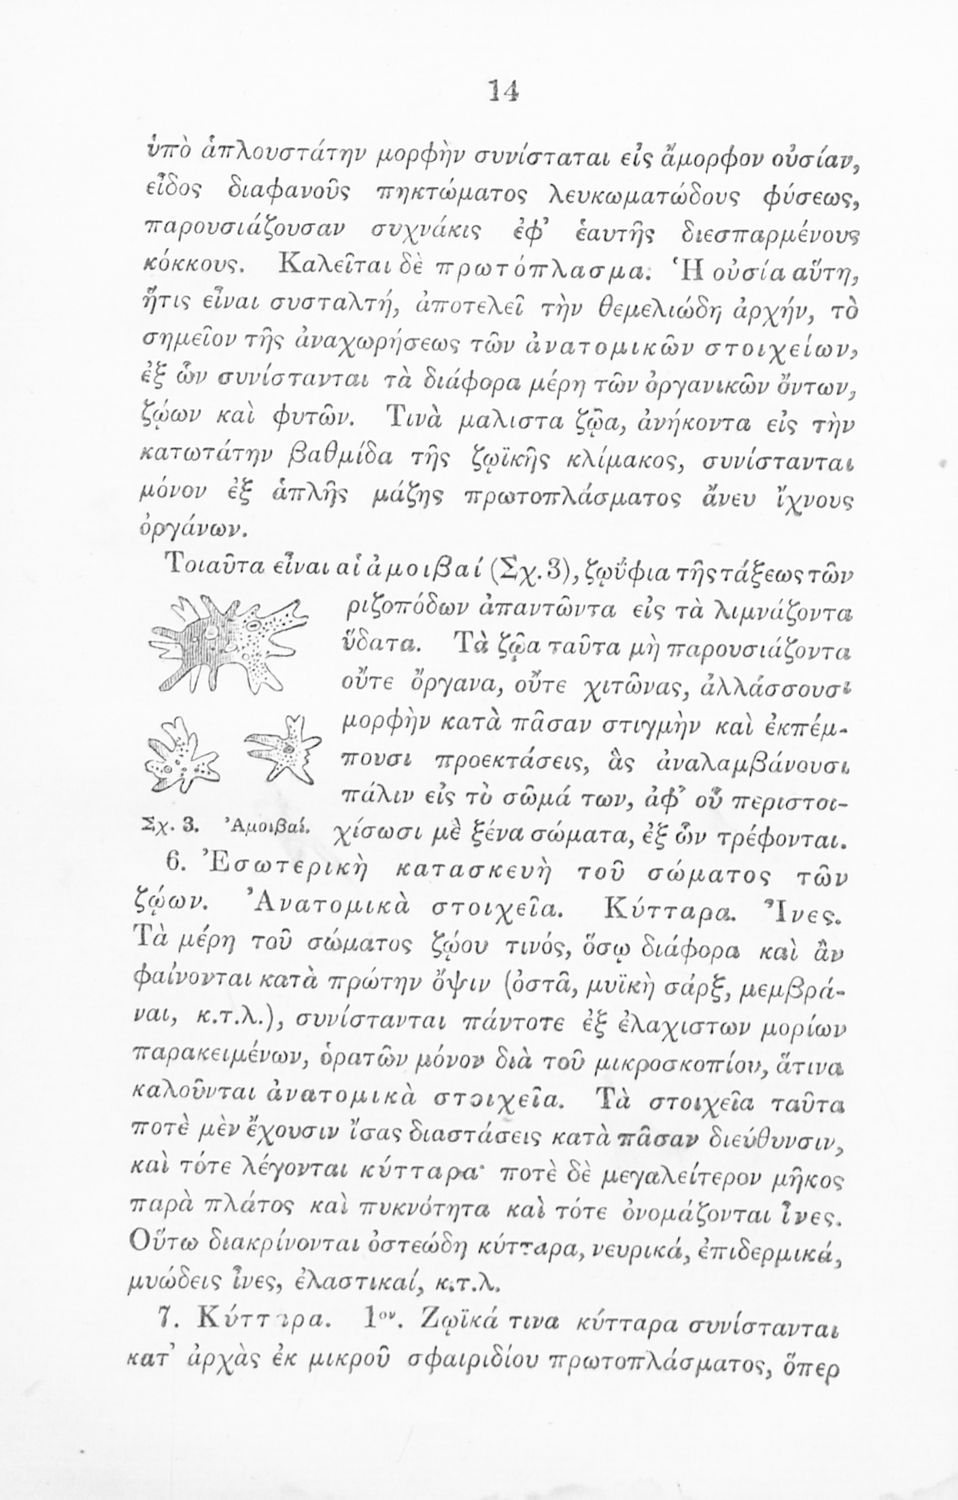 14
ὑπὸ ἁπλουστάτην μορφὴν συνίσταται εἰς ἄμορφον οὐσίαν,
εἶδος διαφανοῦς πηκτώματος λευκωματώδους φύσεως,
παρουσιάζουσαν συχνάκις ἐφ’ ἑαυτῆς διεσπαρμένους
κόκκους. Καλεῖται δὲ πρωτόπλασμα. Ἡ οὐσία αὕτη,
ἥτις εἶναι συσταλτή, ἀποτελεῖ τὴν θεμελιώδη ἀρχήν, τὸ
σημεῖον τῆς ἀναχωρήσεως τῶν ἀνατομικῶν στοιχείων,
ἐξ ὧν συνίστανται τὰ διάφορα μέρη τῶν ὀργανικῶν ὄντων,
ζῴων καὶ φυτῶν. Τινὰ μαλιστα ζῷα, ἀνήκοντα εἰς τὴν
κατωτάτην βαθμίδα τῆς ζῳϊκῆς κλίμακος, συνίστανται
μόνον ἐξ ἁπλῆς μάζης πρωτοπλάσματος ἄνευ ἴχνους
ὀργάνων.
Τοιαῦτα εἶναι αἱ ἀμοιβαί (Σχ. 3), ζῳΰφια τῆς τάξεως τῶν
ριζοπόδων ἀπαντῶντα εἰς τὰ λιμνάζοντα
ὕδατα. Τὰ ζῷα ταῦτα μὴ παρουσιάζοντα
οὔτε ὄργανα, οὔτε χιτῶνας, ἀλλάσσουσι
μορφὴν κατὰ πᾶσαν στιγμὴν καὶ ἐκπέμ-
πουσι προεκτάσεις, ἃς ἀναλαμβάνουσι
πάλιν εἰς τὸ σῶμά των, ἀφ’ οὗ περιστοι-
Σχ. 3. Ἀμοιβαί. χίσωσι μὲ ξένα σώματα, ἐξ ὧν τρέφονται.
6. Ἐσωτερικὴ κατασκευὴ τοῦ σώματος τῶν
ζῴων. Ἀνατομικὰ στοιχεῖα. Κύτταρα. Ἶνες.
Τὰ μέρη τοῦ σώματος ζῴου τινός, ὅσῳ διάφορα καὶ ἂν
φαίνονται κατὰ πρώτην ὄψιν (ὀστᾶ, μυϊκὴ σάρξ, μεμβρά-
ναι, κ.τ.λ.), συνίστανται πάντοτε ἐξ ἐλαχιστων μορίων
παρακειμένων, ὁρατῶν μόνον διὰ τοῦ μικροσκοπίου, ἅτινα
καλοῦνται ἀνατομικὰ στοιχεῖα. Τὰ στοιχεῖα ταῦτα
ποτὲ μὲν ἔχουσιν ἴσας διαστάσεις κατὰ πᾶσαν διεύθυνσιν,
καὶ τότε λέγονται κύτταρα· ποτὲ δὲ μεγαλείτερον μῆκος
παρὰ πλάτος καὶ πυκνότητα καὶ τότε ὀνομάζονται ἶνες.
Οὕτω διακρίνονται ὀστεώδη κύτταρα, νευρικά, ἐπιδερμικά,
μυώδεις ἶνες, ἐλαστικαί, κ.τ.λ.
7. Κύτταρα. 1ον. Ζῳϊκά τινα κύτταρα συνίστανται
κατ’ ἀρχὰς ἐκ μικροῦ σφαιριδίου πρωτοπλάσματος, ὅπερ